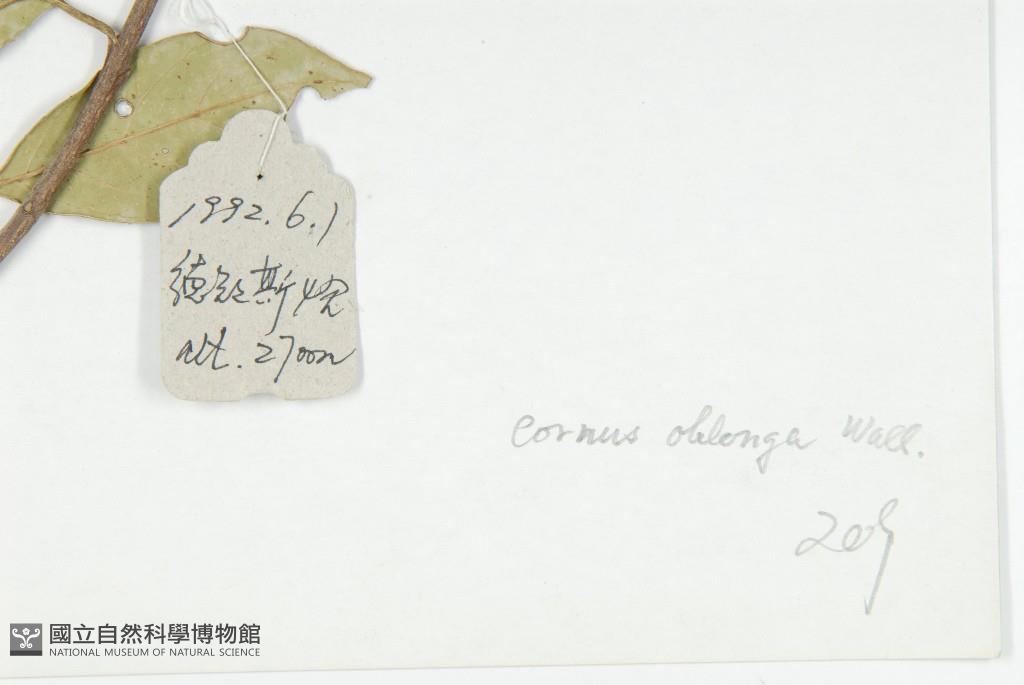 1992.6.1
德欽斯
alt. 2700m
Cornus oblonga Wall.
國立自然科學博物館
NATIONAL MUSEUM OF NATURAL SCIENCE